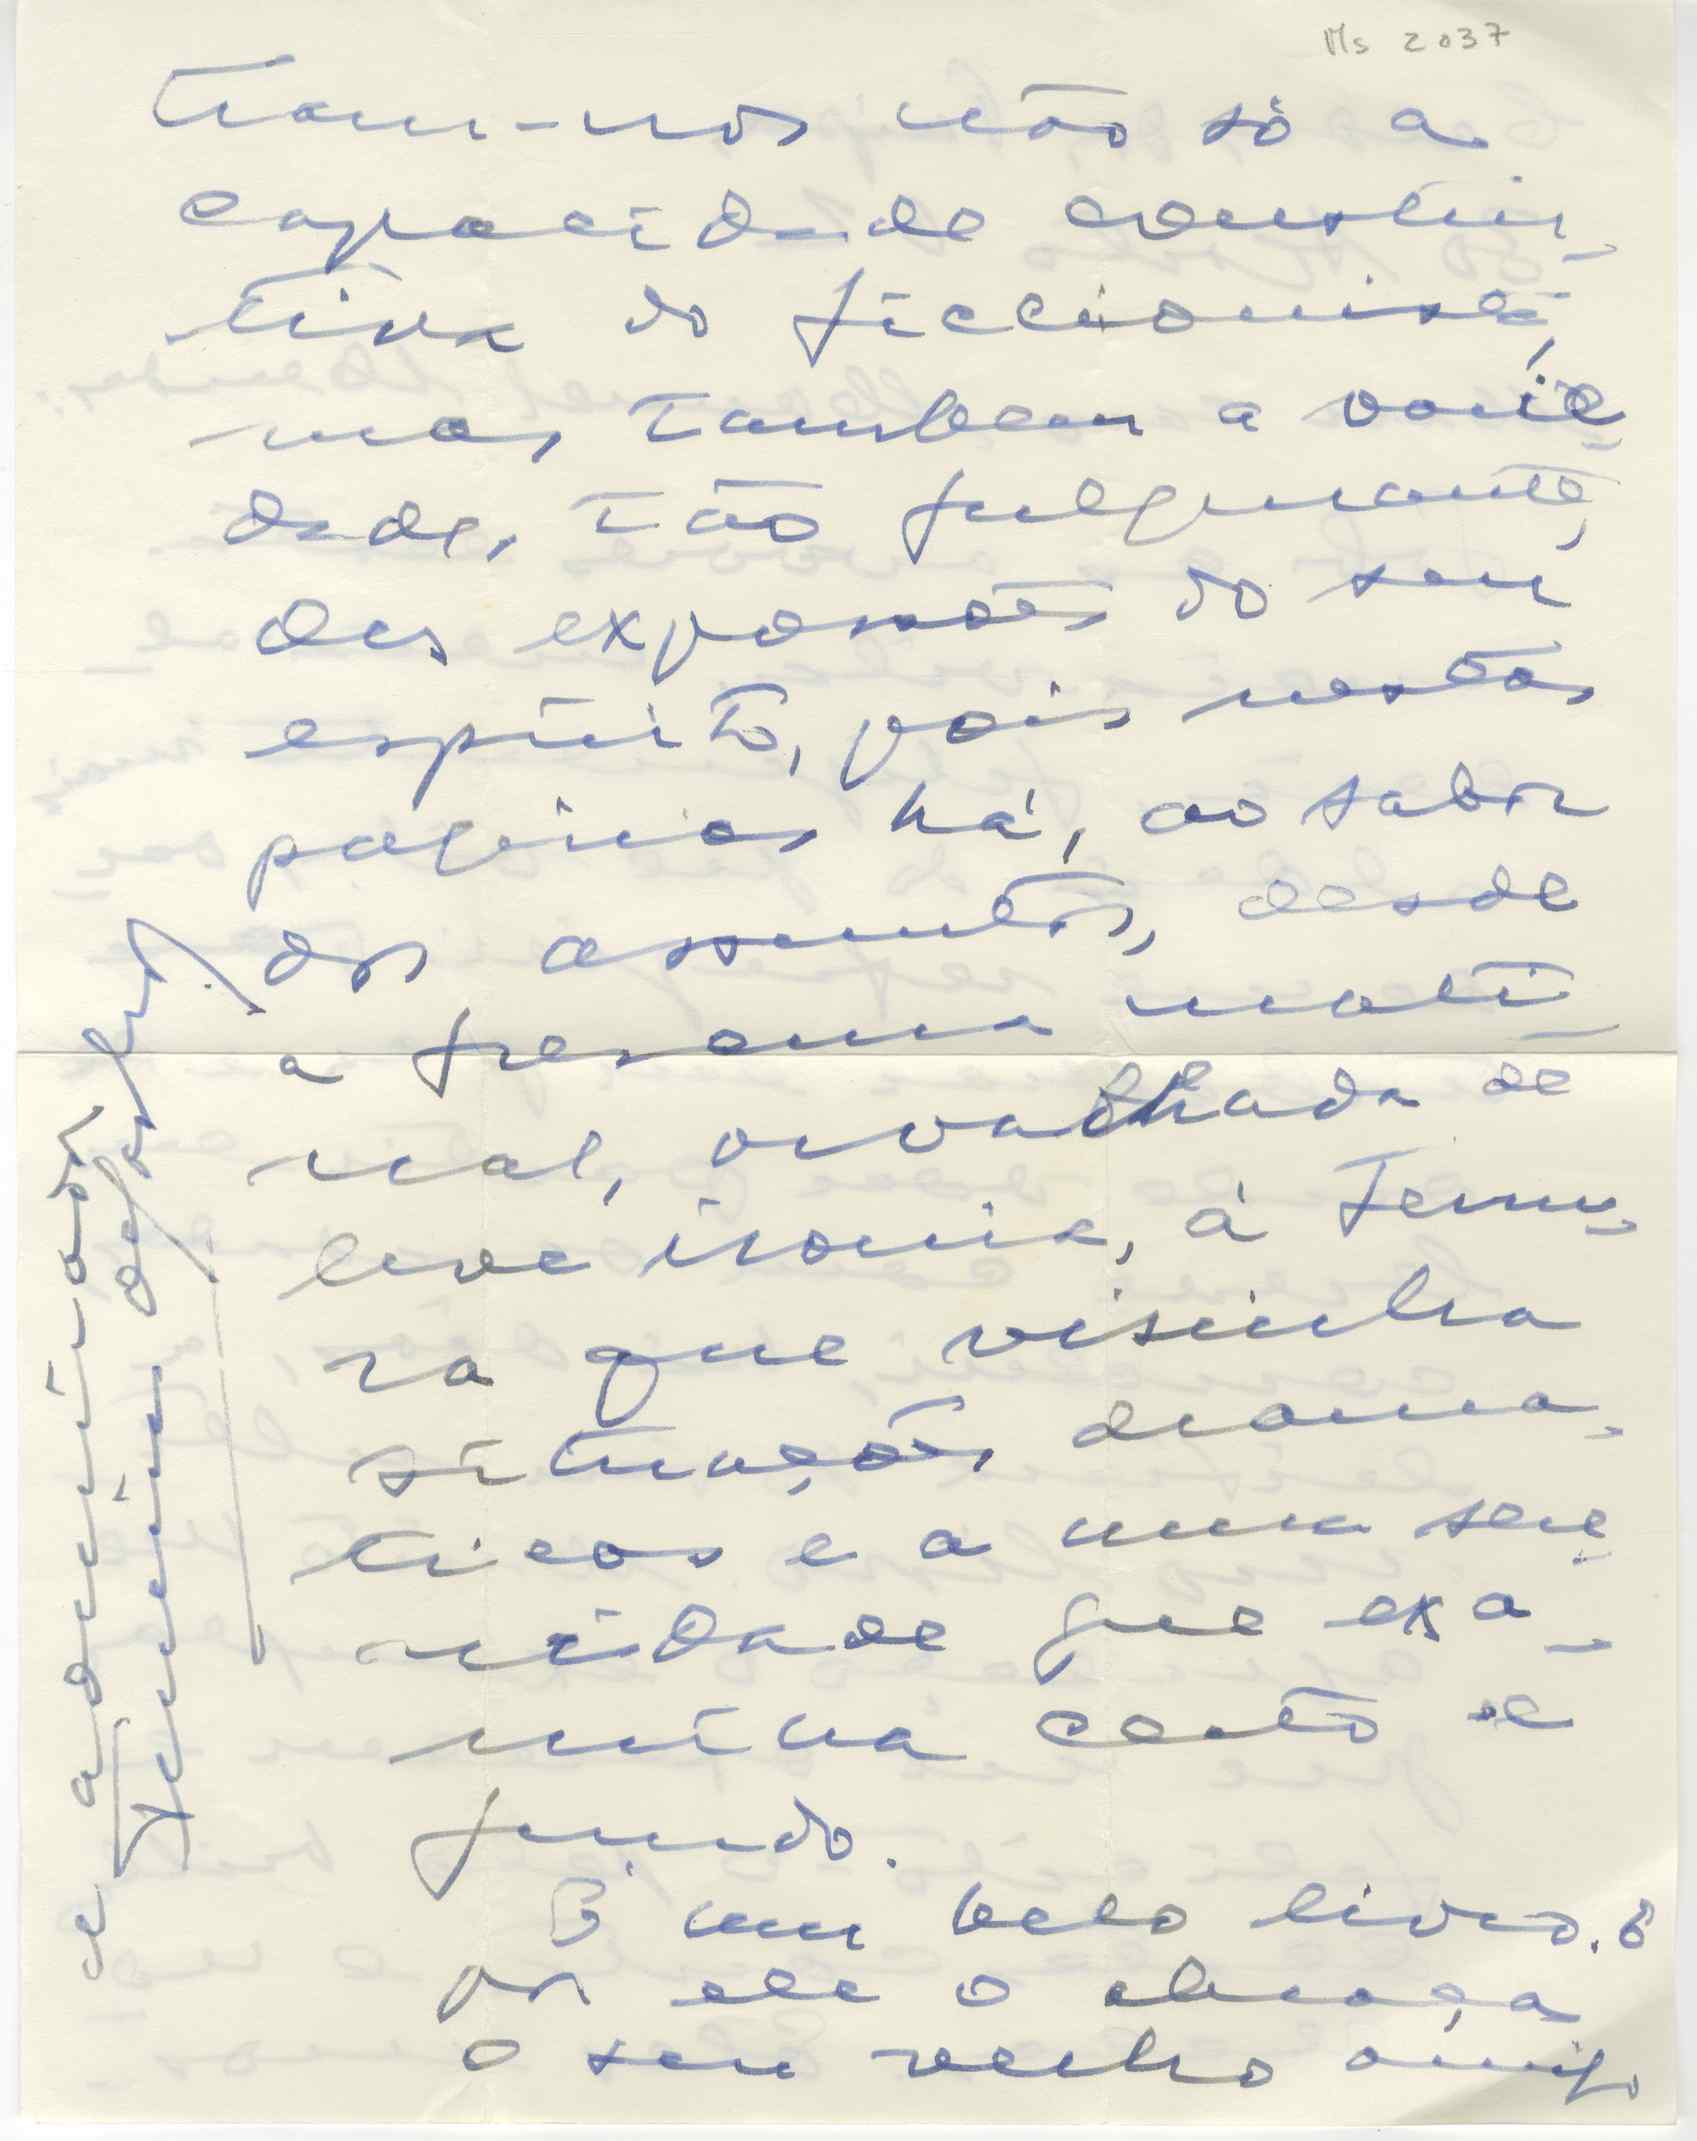 Ms 2037
tram-nos não só a
capacidade constru-
tiva do ficcionista,
mas tambem a varie-
dade, tão fulgurante,
das expansões do seu
espirito, pois nestas
paginas há, ao sabor
dos assuntos, desde
a frescura mati-
nal, orvalhada de
leve ironia, á ternu-
ra que visinha
situações drama-
ticas e a uma sere-
nidade que exa-
mina certo
fundo.
É um belo livro. E
por ele o abraça
o seu velho amigo
e admirador
Ferreira de Castro